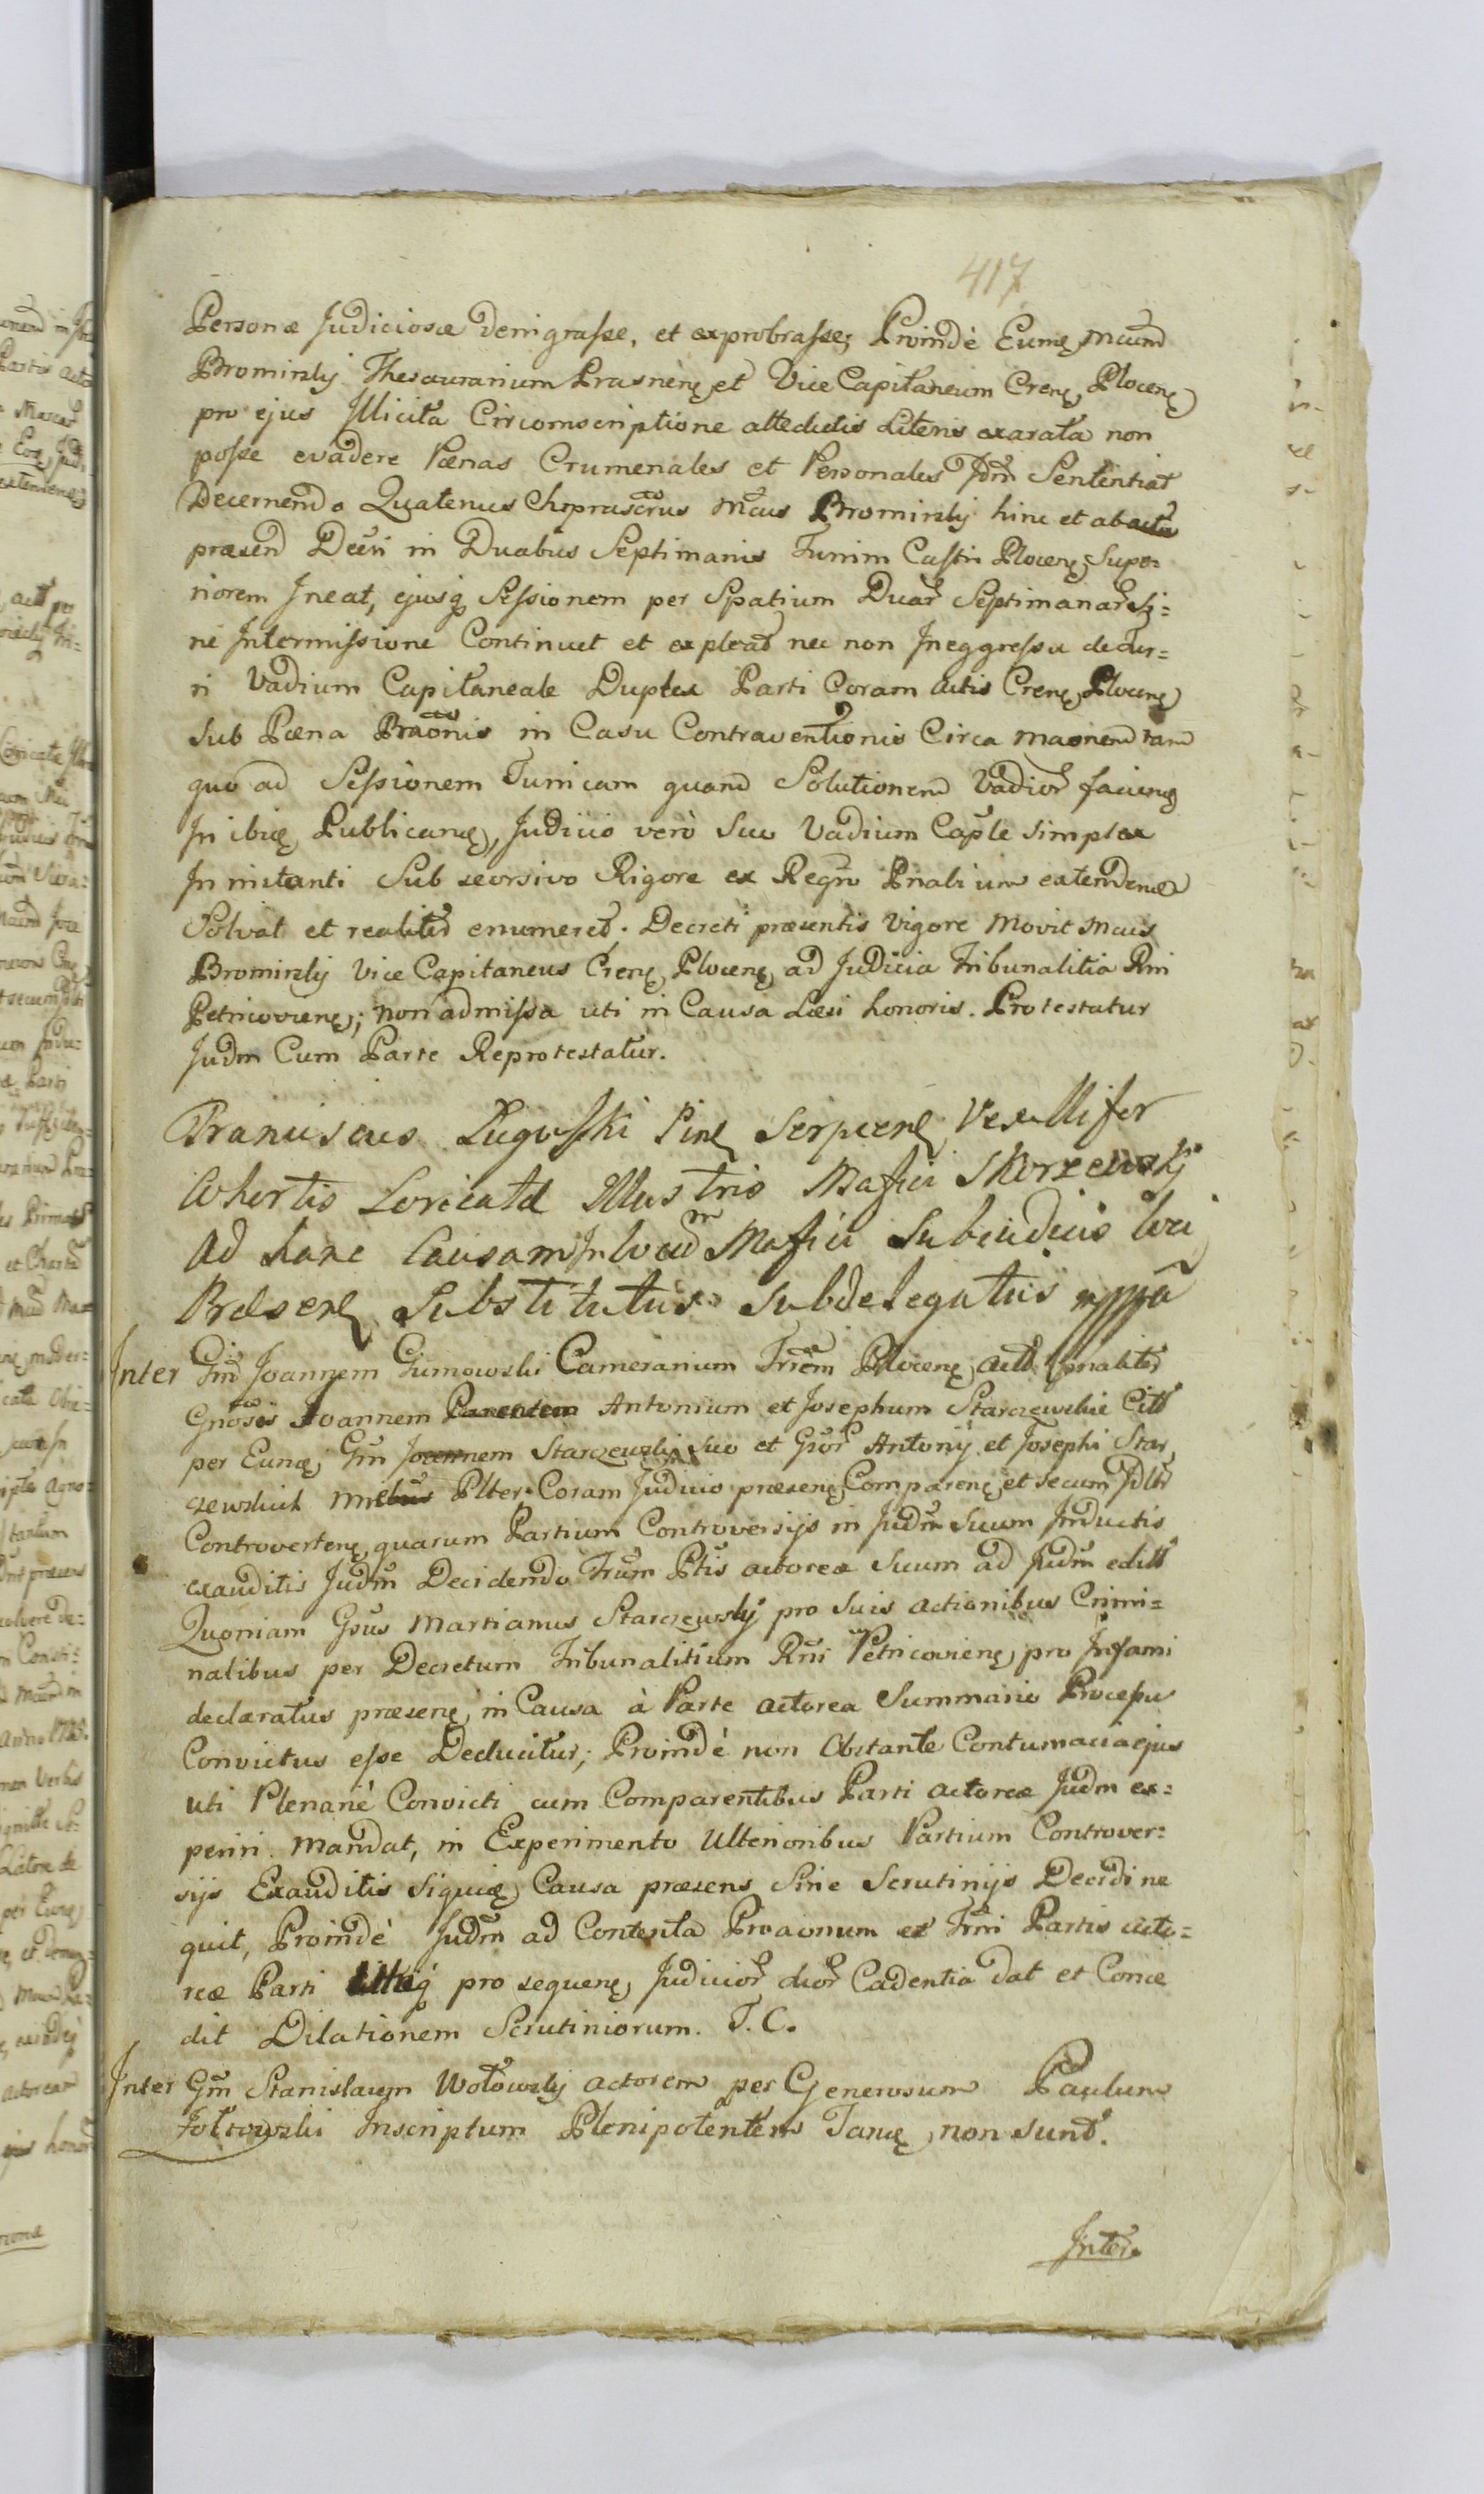 417
Personæ Judiciosæ denigraſse, et exprobraſse; Proindè Eumę Mcum
Brominsky Thesaurarium Prasnenę et Vice Capitaneum Crenę Plocenę
pro ejus Illicita Circumscriptione attedictis Literis exarata non
poſse evadere Pænas Crumenales et Personales Jdm Sententiat
Decernendo Quatenus Mcus Brominsky hinc et ab actu
præsend Decti in Duabus Septimanis Turrim Castri Plocenę Supe-
riorem Ineat, ejusq Seſsionem per Spatium Duar Septimanar Si=
ne Intermiſsione Continuet et expleat nec non Ineggreſsu decur=
ri Vadium Capitaneale Duplex Parti Coram Actis Crenę Plocenę
sub Pæna Baonis in Casu Contraventionis Circa maonem tam
quo ad Seſsionem Turricam quam Solutionem Vadior facienę
In ibię Publicanę, Judicio verò Suo Vadium Caple simplex
In instanti Sub seorsivo Rigore ex Regro Pnalium extendenę
Solvat et realiter enumeret. Decreti præsentis Vigore Movit Mcus
Brominsky Vice Capitaneus Crenę Plocenę ad Judicia Tribunalitia Rni
Petricovienę; non admiſsa uti in Causa Læsi honoris. Protestatur
Judm Cum Parte Reprotestatur.
Franciscus Ługoſki Pinę Serpcenę Vexillifer
Cohortis Loricatæ Illustris Mafici Skorzewskj
Ad hanc Causam In locum Mafici Subiudicis loci
Præsenę Substitutus Subdelegatus mppa
Inter Gm Joannem Gumowski Camerarium Trrem Plocenę Actt Psnaliter
Gnosos Joannem Parentem Antonium et Josephum Starczewskie Citt
per Eunę Gm Joannem Starczewsky suo et Gsor Antonij et Josephi Star
czewskich Plter Coram Judicio præsenę Comparenę et secum Jdltr
Controvertenę, quarum Partium Controversijs in Judm Suum Inductis
exauditis Judm Decidendo Trum Ptis actoreæ Suum ad Judm editt
Quoniam Gsus Martianus Starczewsky pro Suis actionibus Crimi=
nalibus per Decretum Tribunalitium Rni Petricovienę, pro Infami
declaratus præsenę, in Causa à Parte actorea Summario Proceſsu
Convictus eſse Deducitur; Proindè non Obstante Contumacia ejus
uti Plenariè Convicti cum Comparentibus Parti actoreæ Judm ex=
periri mandat, in Experimento Ulterioribus Partium Controver=
sijs Exauditis Siquię, Causa præsens Sine Scrutinijs Decidi ne
quit, Proindè Judm ad Contenta Proaonum et Trni Partis acto=
reæ Parti Utriq pro sequenę, Judicior dior Cadentia dat et Conce
dit Dilationem Scrutiniorum. T.C.
Inter Gm Stanislaum Wołowsky actorem per Generosum Paulum
Żołtowski Inscriptum Plenipotentem Tanę, non sunt.
Inter.